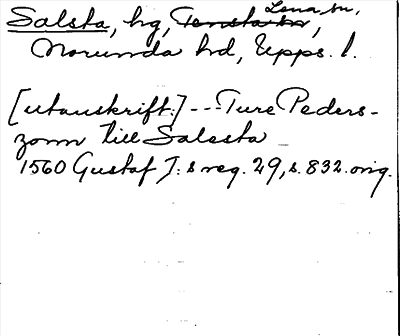 Salsta, hg, Tensta sn, Lena sn,
Norunda hd, Upps. l.
[utanskrift:] --- Ture Peders-
zonn till Salesta
1560 Gustaf I:s reg. 29, s. 832. orig.